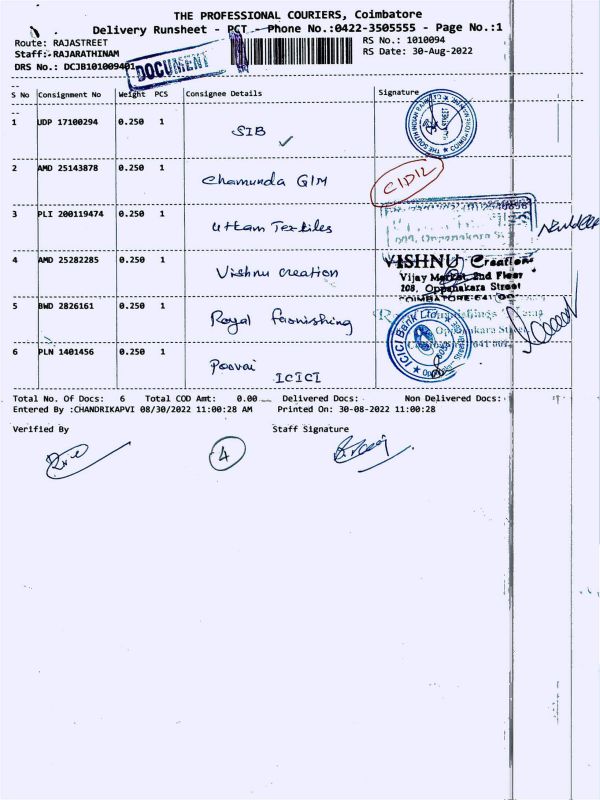 THE PROFESSIONAL COURIERS, Coimbatore
Delivery Runsheet - PCT - Phone No.:0422-3505555 - Page No.:1
Route: RAJASTREET
RS No.: 1010094
Staff:-RAJARATHINAM
RS Date: 30-Aug-2022
DRS No.: DCJB101009401
DOCUMENT
S No Consignment No Weight PCS Consignee Details Signature
1 UDP 17100294 0.250 1 SIB
2 AMD 25143878 0.250 1 Chamunda GIM
3 PLI 200119474 0.250 1 Uttam Textiles
4 AMD 25282285 0.250 1 Vishnu creation
VISHNU Creations
Vijay Market, 2nd Floor
208, Oppanakara Street
COIMBATORE-641 001
5 BWD 2826161 0.250 1 Royal faonishing
6 PLN 1401456 0.250 1 Poovai
ICICI
ICICI Bank Ltd
Total No. Of Docs: 6 Total COD Amt: 0.00 Delivered Docs: Non Delivered Docs:
Entered By :CHANDRIKAPVI 08/30/2022 11:00:28 AM Printed On: 30-08-2022 11:00:28
Verified By Staff Signature
4